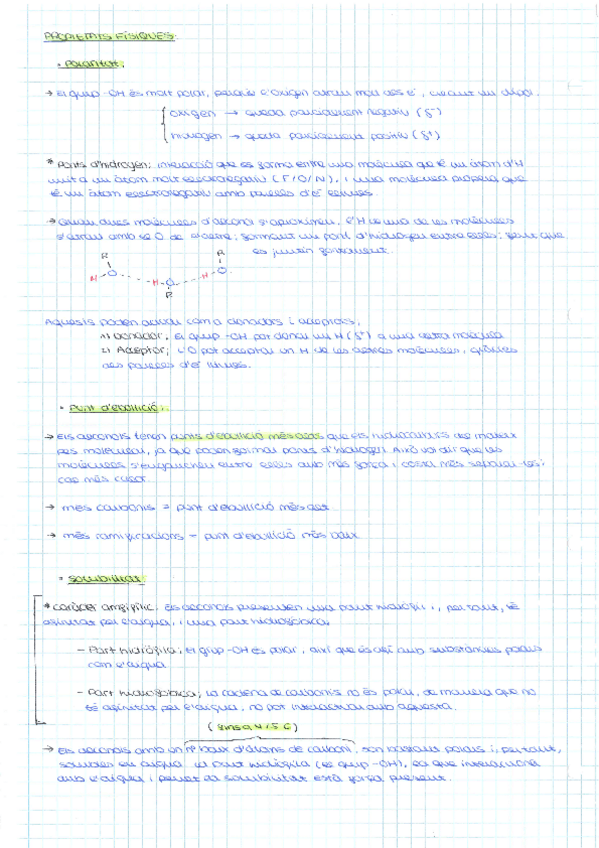 PROPIETATS FÍSIQUES:
· Polaritat:
→ El grup -OH és molt polar, perquè l'oxigen atrau més els e⁻, creant un dipol.
oxigen → queda parcialment negatiu (δ⁻)
hidrogen → queda parcialment positiu (δ⁺)
* Ponts d'hidrogen: interacció que es forma entre una molècula que té un àtom d'H
unit a un àtom molt electronegatiu (F/O/N), i una molècula propera que
té un àtom electronegatiu amb parelles d'e⁻ lliures.
→ Quan dues molècules d'alcohol s'aproximen, l'H de una de les molècules
s'atrau amb l'O de l'altre, formant un pont d'hidrogen entre elles; fent que
es juntin fortament.
R R
H O H O H O
R
Aquests poden actuar com a donadors i acceptors,
1) Donador; El grup -OH pot donar un H (δ⁺) a una altra molècula
2) Acceptor; L'O pot acceptar un H de les altres molècules, gràcies
als parelles d'e⁻ lliures.
· Punt d'ebullició:
→ Els alcohols tenen punts d'ebullició més alts que els hidrocarburs del mateix
pes molecular, ja que poden formar ponts d'hidrogen. Això vol dir que les
molècules s'enganxen entre elles amb més força i costa més separar-les;
cal més calor.
→ més carbonis = punt d'ebullició més alt
→ més ramificacions = punt d'ebullició més baix
· Solubilitat
* Caràcter amfifílic, els alcohols presenten una part hidròfila, per tant, té
afinitat per l'aigua, i una part hidrofòbica
- Part hidròfila; el grup -OH és polar, així que és afí amb substàncies polars
com l'aigua
- Part hidrofòbica; la cadena de carbonis no és polar, de manera que no
té afinitat per l'aigua, no pot interactuar amb aquesta.
(fins a 4/5 C)
→ Els alcohols amb un nº baix d'àtoms de carboni, són bastant polars i, per tant,
solubles en aigua. La part hidròfila (el grup -OH), és la que interacciona
amb l'aigua i permet la solubilitat està força present.